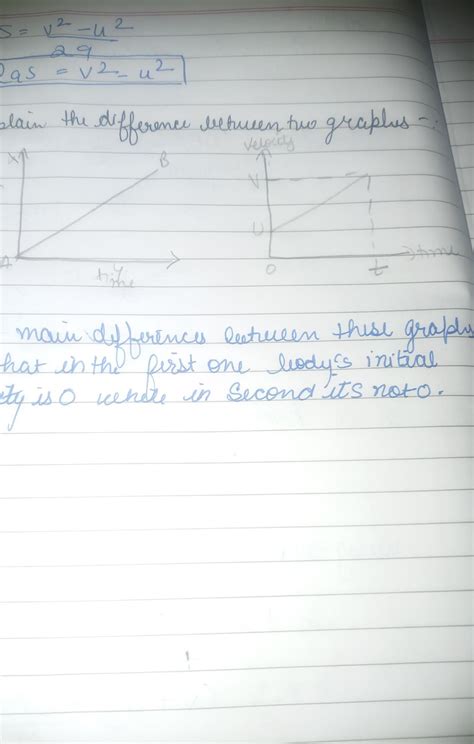 S = v² - u²
2a
2as = v² - u²
plain the difference between two graphs -:
X B velocity
V
U
A time O t time
main differences between these graphs
that in the first one body's initial
ity is 0 where in Second its not 0.